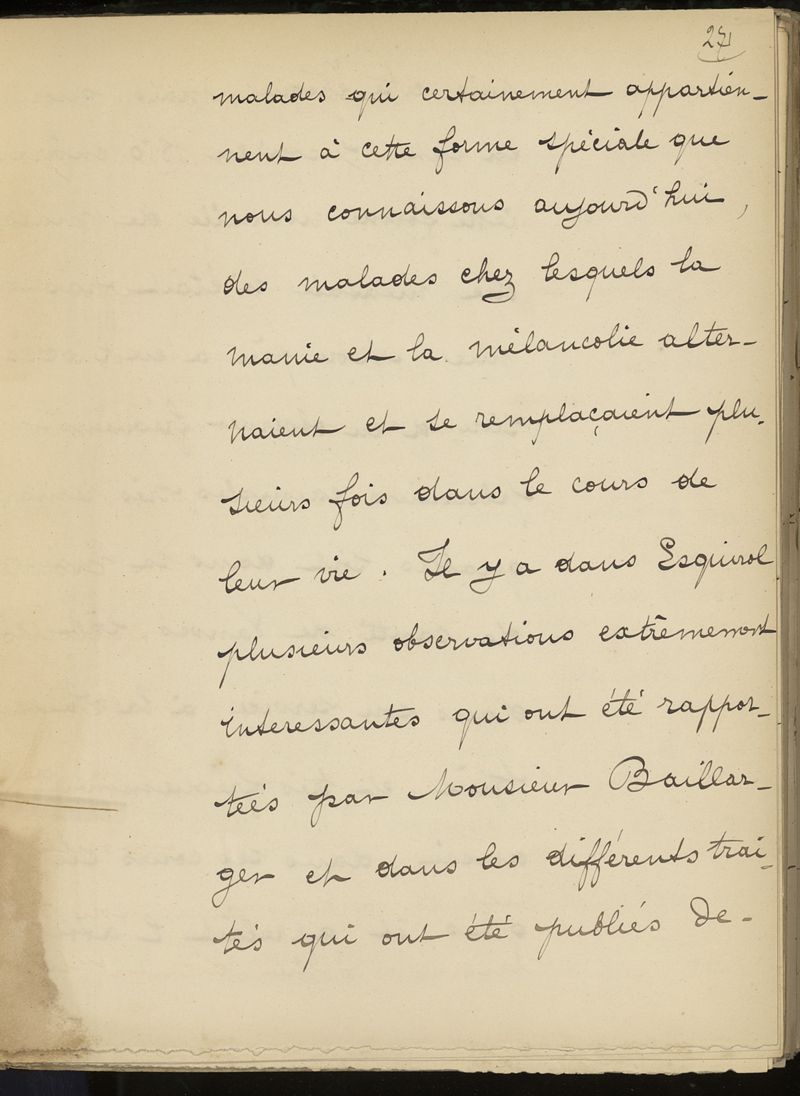 27
malades qui certainement appartien-
nent à cette forme spéciale que
nous connaissons aujourd'hui,
des malades chez lesquels la
manie et la mélancolie alter-
naient et se remplaçaient plu-
sieurs fois dans le cours de
leur vie. Il y a dans Esquirol
plusieurs observations extrêmement
interessantes qui ont été rappor-
teés par Monsieur Baillar-
ger et dans les différents trai-
tés qui ont été publiés de-